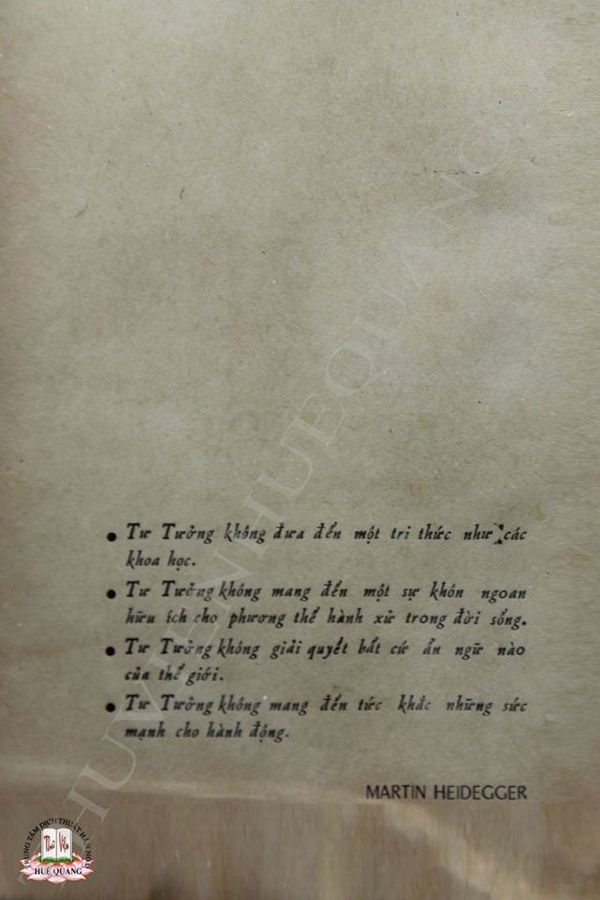 • Tư Tưởng không đưa đến một tri thức như các
khoa học.
• Tư Tưởng không mang đến một sự khôn ngoan
hữu ích cho phương thế hành xử trong đời sống.
• Tư Tưởng không giải quyết bất cứ ẩn ngữ nào
của thế giới.
• Tư Tưởng không mang đến tức khắc những sức
mạnh cho hành động.
MARTIN HEIDEGGER
THƯ VIỆN HUỆ QUANG
TRUNG TÂM DỊCH THUẬT HÁN NÔM
Thư Viện
HUỆ QUANG